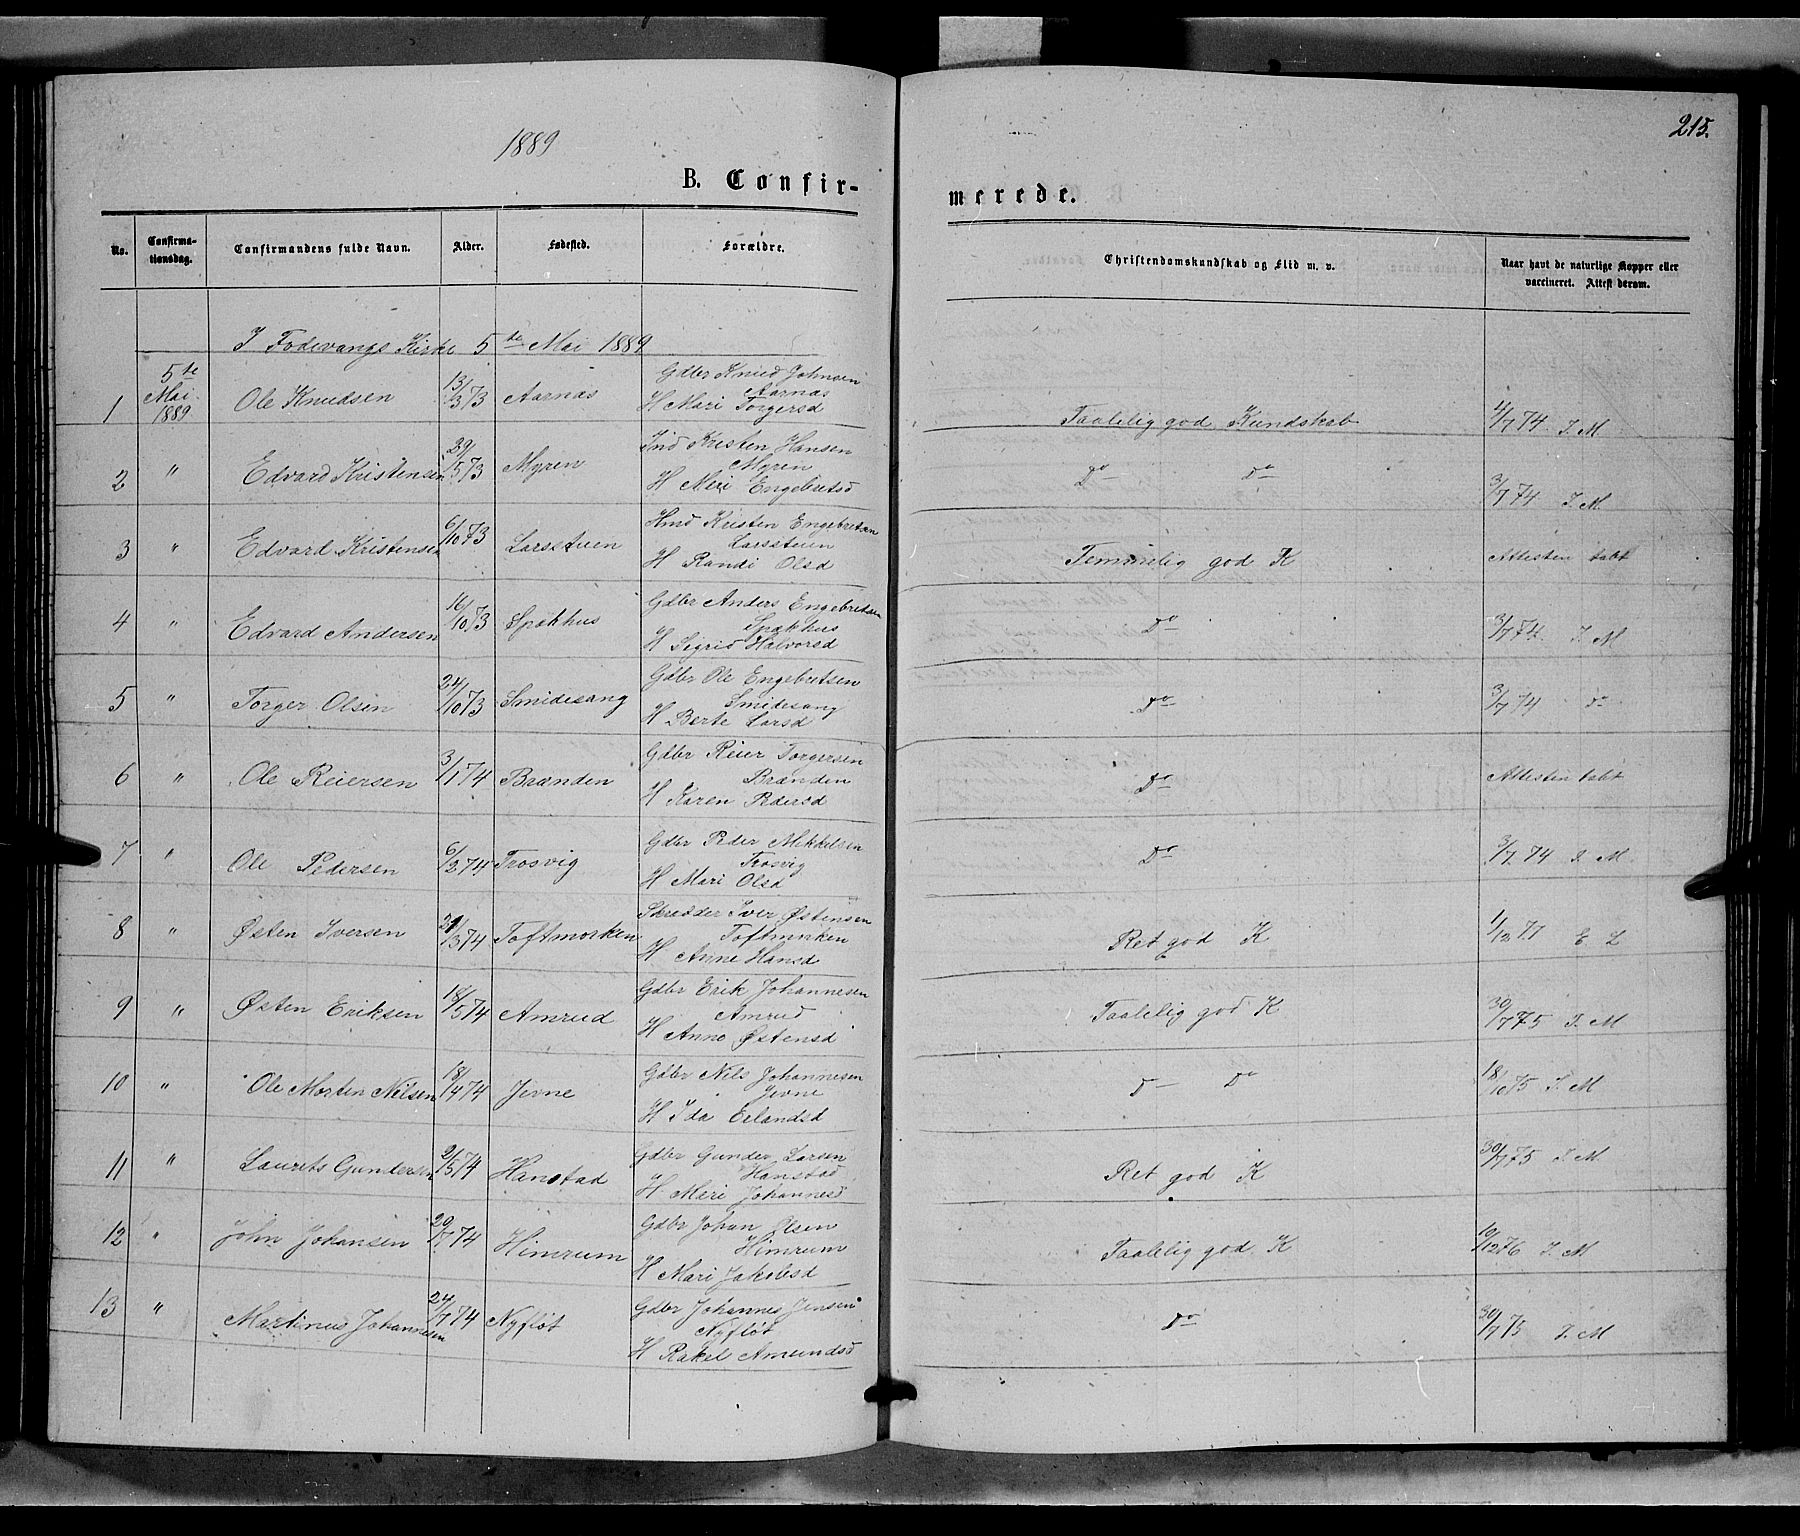 1889
215.
B. Confir-
merede.
No.
Confirma-
tionsdag.
Confirmandens fulde Navn.
Alder.
Fødested.
Forældre.
Christendomskundskab og Flid m. v.
Naar havt de naturlige Kopper eller
vaccineret. Attest derom.
I Fodevangs Kirke 5te Mai 1889
1 5te Mai 1889 Ole Knudsen 13/3 73 Aarnæs Gdbr Knud Johnsen
Aarnæs
H Mari Torgersd Taalelig god Kundskab 4/7 74 I. M
2 " Edvard Kristensen 29/5 73 Myren Ind Kristen Hansen
Myren
H Mari Engebretsd Do Do 3/7 74 I. M
3 " Edvard Kristensen 6/10 73 Larsstuen Hmd Kristen Engebretsen
Larsstuen
H Randi Olsd Temmelig god K Attesten tabt
4 " Edvard Andersen 16/10 73 Spakhus Gdbr Anders Engebretsen
Spakhus
H Sigrid Halvorsd Do 3/7 74. I. M
5 " Torger Olsen 24/10 73 Smidesang Gdbr Ole Engebretsen
Smidesang
H Berte Larsd Do 3/7 74 Do
6 " Ole Reiersen 3/1 74 Brænden Gdbr Reier Torgersen
Brænden
H Karen Pedersd Do Attesten tabt
7 " Ole Pedersen 6/2 74 Trosvig Gdbr Peder Mikkelsen
Trosvig
H Mari Olsd Do 3/7 74 I. M
8 " Østen Iversen 31/3 74 Toftmorken Skredder Iver Østensen
Toftmorken
H Anne Hansd Ret god K 1/12 77 E L
9 " Østen Eriksen 18/5 74 Amrud Gdbr Erik Johannesen
Amrud
H Anne Østensd Taalelig god K 30/7 75 I. M
10 " Ole Morten Nilsen 18/4 74 Jevne Gdbr Nils Johannesen
Jevne
H Ida Erlandsd D Do 18/10 75 I. M
11 " Laurits Gundersen 2/5 74 Hanstad Gdbr Gunder Larsen
Hanstad
H Mari Johannesd Ret god K 30/7 75 I. M
12 " John Johansen 29/7 74 Himrum Gdbr Johan Olsen
Himrum
H Mari Jakobsd Taalelig god K 19/12 76 I. M
13 " Martinus Johannesen 24/7 74 Nyfløt Gdbr Johannes Jensen
Nyfløt
H Rakel Amundsd Do 30/7 75 I. M